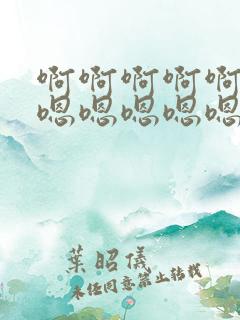 啊啊啊啊啊
嗯嗯嗯嗯嗯
葉昭儀
未经同意禁止转载